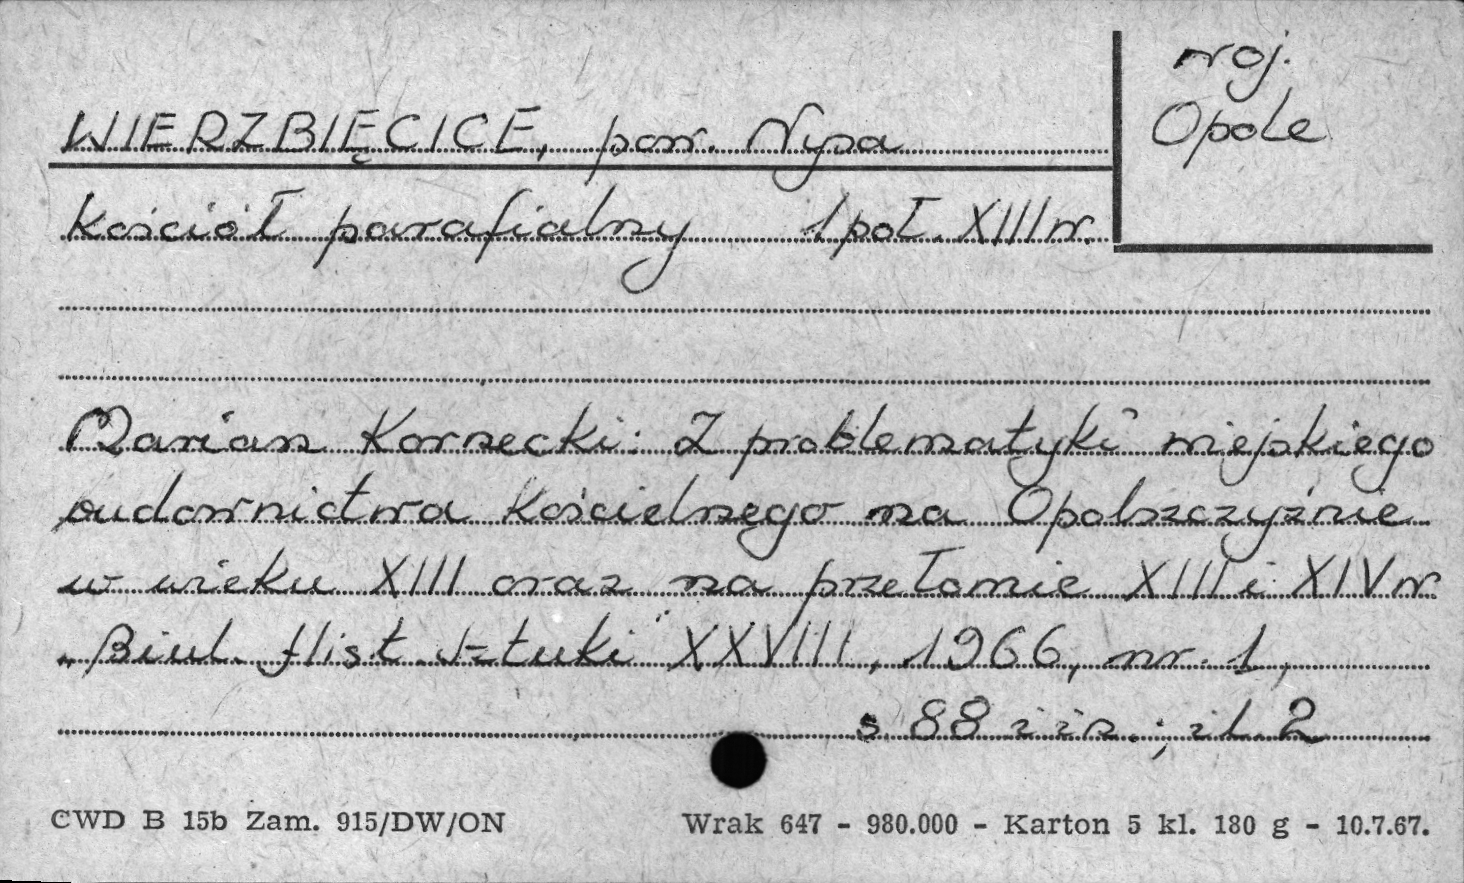 woj.
Opole
WIERZBIĘCICE, pow. Nysa
Kościół parafialny 1 poł. XIII w.
Marian Kornecki: Z problematyki miejskiego
budownictwa kościelnego na Opolszczyźnie
w wieku XIII oraz na przełomie XIII i XIV w.
„Biul. Hist. Sztuki" XXVIII, 1966, nr. 1,
s. 88 i in.; il. 2
CWD B 15b Zam. 915/DW/ON
Wrak 647 - 980.000 - Karton 5 kl. 180 g - 10.7.67.